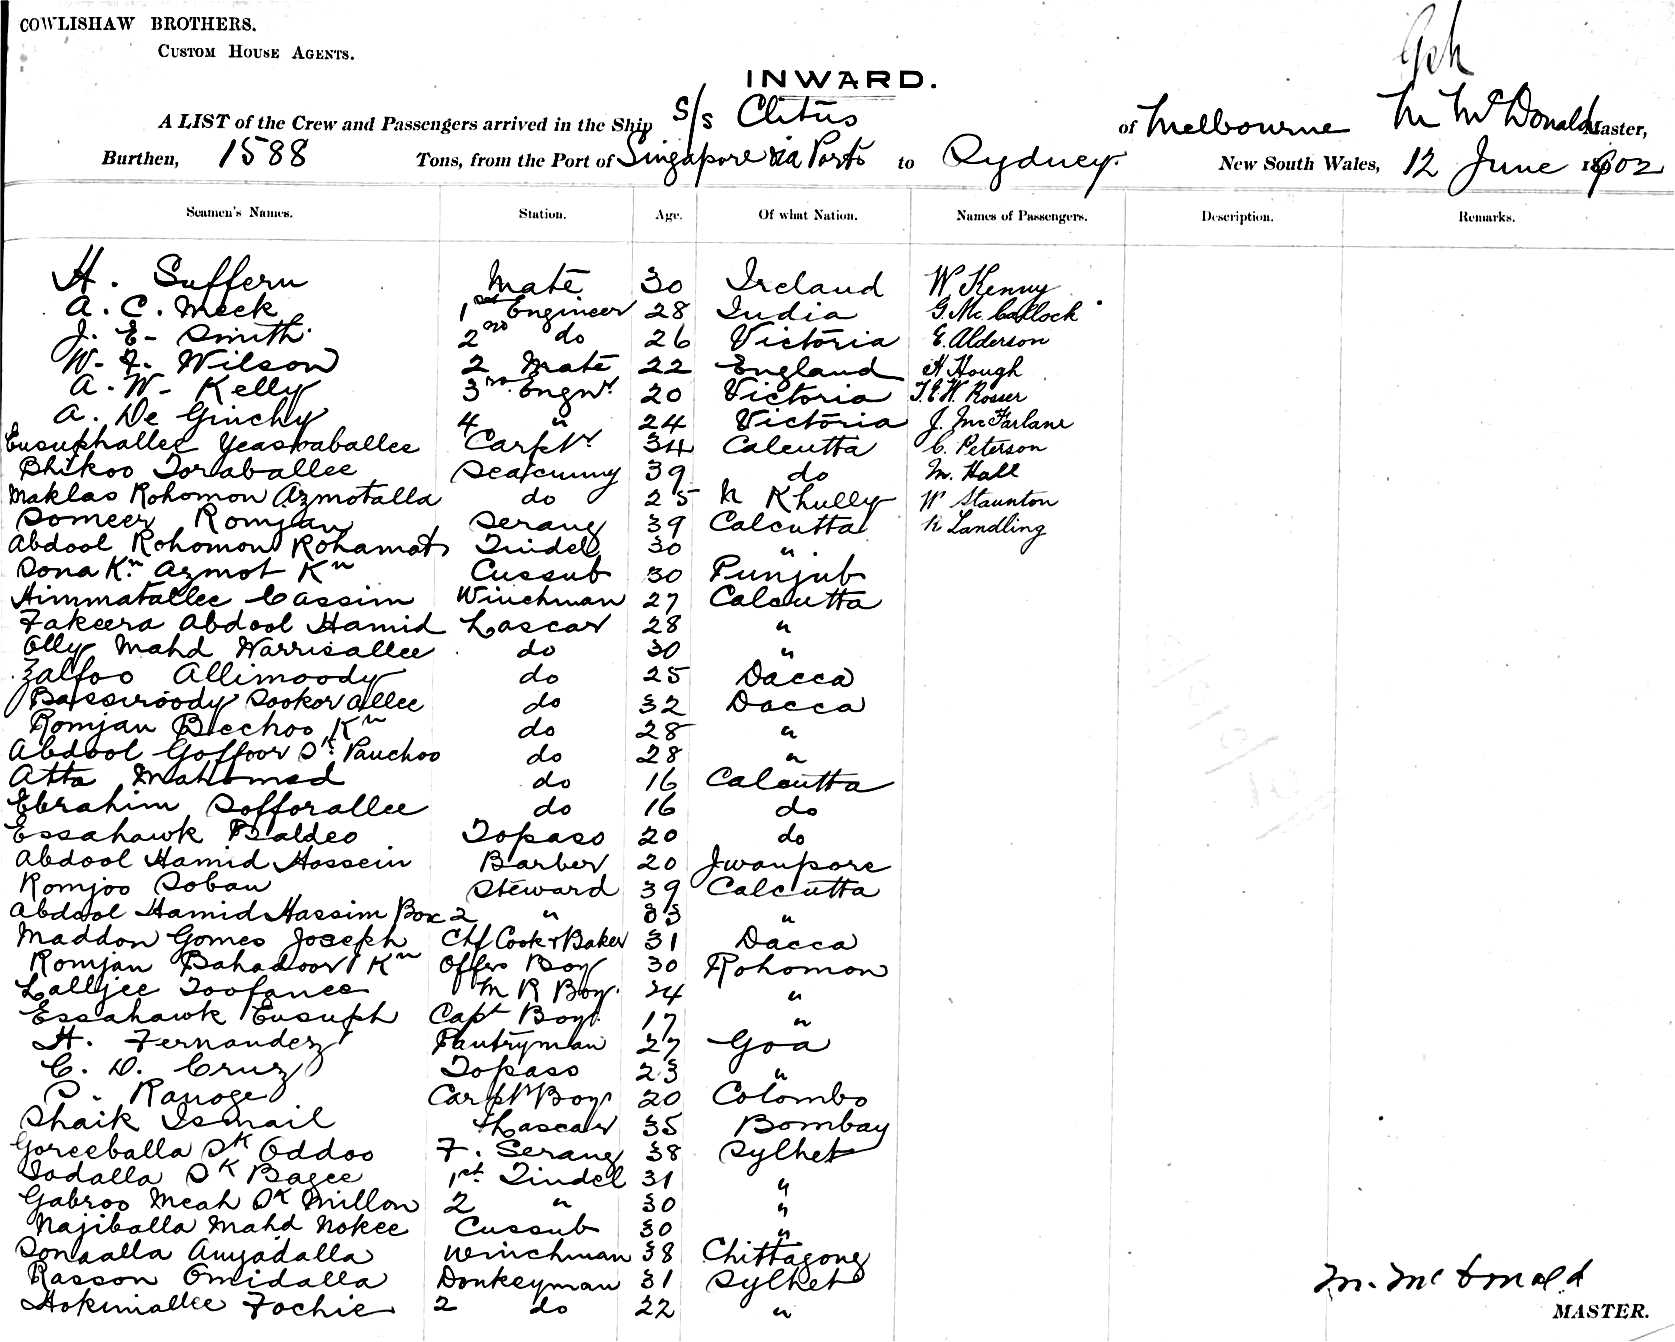 COWLISHAW BROTHERS.
CUSTOM HOUSE AGENTS.
INWARD.
A LIST of the Crew and Passengers arrived in the Ship S/s Clitus of Melbourne M McDonald Master,
Burthen, 1588 Tons, from the Port of Singapore via Ports to Sydney. New South Wales, 12 June 1902
Seamen's Names. Station. Age. Of what Nation. Names of Passengers. Description. Remarks.
H. Suffern Mate 30 Ireland W Kenny
A. C. Meek 1st Engineer 28 India G. McCullock
J. E. Smith 2nd do 26 Victoria E. Alderson
W. F. Wilson 2 Mate 22 England H Hough
A. W. Kelly 3rd Engnr 20 Victoria T.E.W. Rosser
A. De Ginchy 4 " 24 Victoria J. McFarlane
Eusuphallee Yeaswaballee Carptr 34 Calcutta C. Peterson
Bhikoo Toraballee Seacunny 39 do M. Hall
Maklas Rohomon Azmotalla do 25 N Khully W Staunton
Someer Romjan Serang 39 Calcutta N Landling
Abdool Rohomon Rohamat Tindel 30 "
Sona Kn Azmot Kn Cussub 30 Punjub
Himmatallee Cassim Winchman 27 Calcutta
Fakeera Abdool Hamid Lascar 28 "
Olly Mahd Warrisallee do 30 "
Zalfoo Allimoody do 25 Dacca
Bassiroody Sookor allee do 32 Dacca
Romjan Bechoo Kn do 28 "
Abdool Goffoor Sk Panchoo do 28 "
Atta Mahomed do 16 Calcutta
Ebrahim Sofforallee do 16 do
Essahawk Baldeo Topaso 20 do
Abdool Hamid Hossein Barber 20 Jwanpore
Romjoo Soban Steward 39 Calcutta
Abdool Hamid Hassim Box 2 " 33 "
Maddon Gomes Joseph Chf Cook & Baker 31 Dacca
Romjan Bahadoor Kn Offrs Boy 30 Rohomon
Lalljee Toofanee M R Boy 24 "
Essahawk Eusuph Capt Boy 17 "
H. Fernandez Pantryman 27 Goa
C. D. Cruz Topaso 23 "
S. Ranoge Carptr Boy 20 Colombo
Shaik Ismail Lascar 35 Bombay
Goreeballa Sk Oddoo F. Serang 38 Sylhet
Sadalla Sk Bagee 1st Tindel 31 "
Gabroo Meah Sk Millon 2 " 30 "
Najiballa Mahd Nokee Cussub 30 "
Sonaalla Amjadalla Winchman 38 Chittagong
Rasson Omidalla Donkeyman 31 Sylhet
Hokimallee Fochie 2 do 22 "
M. McDonald
MASTER.